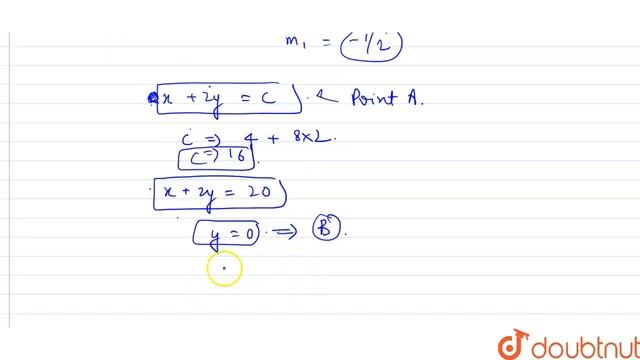 m₁ = (-1/2)
x + 2y = C ← Point A.
C ⇒ 4 + 8×2.
C ⇒ 16.
x + 2y = 20
y = 0 ⇒ B.
doubtnut